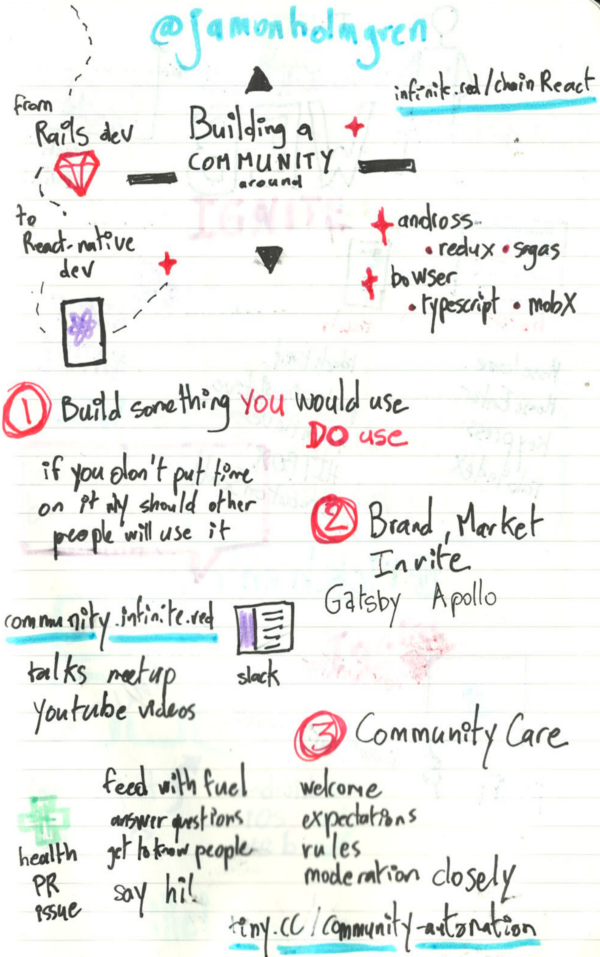 @jamonholmgren
infinite.red/chainReact
from
Rails dev
to
React-native
dev
Building a
COMMUNITY
around
IGNITE
andross
• redux • sagas
bowser
• typescript • mobX
1 Build something YOU would use
DO use
if you don't put time
on it why should other
people will use it
2 Brand, Market
Invite
Gatsby Apollo
community.infinite.red
slack
talks meetup
youtube videos
3 Community Care
feed with fuel
answer questions
get to know people
say hi!
health
PR
issue
welcome
expectations
rules
moderation closely
tiny.cc/community-automation